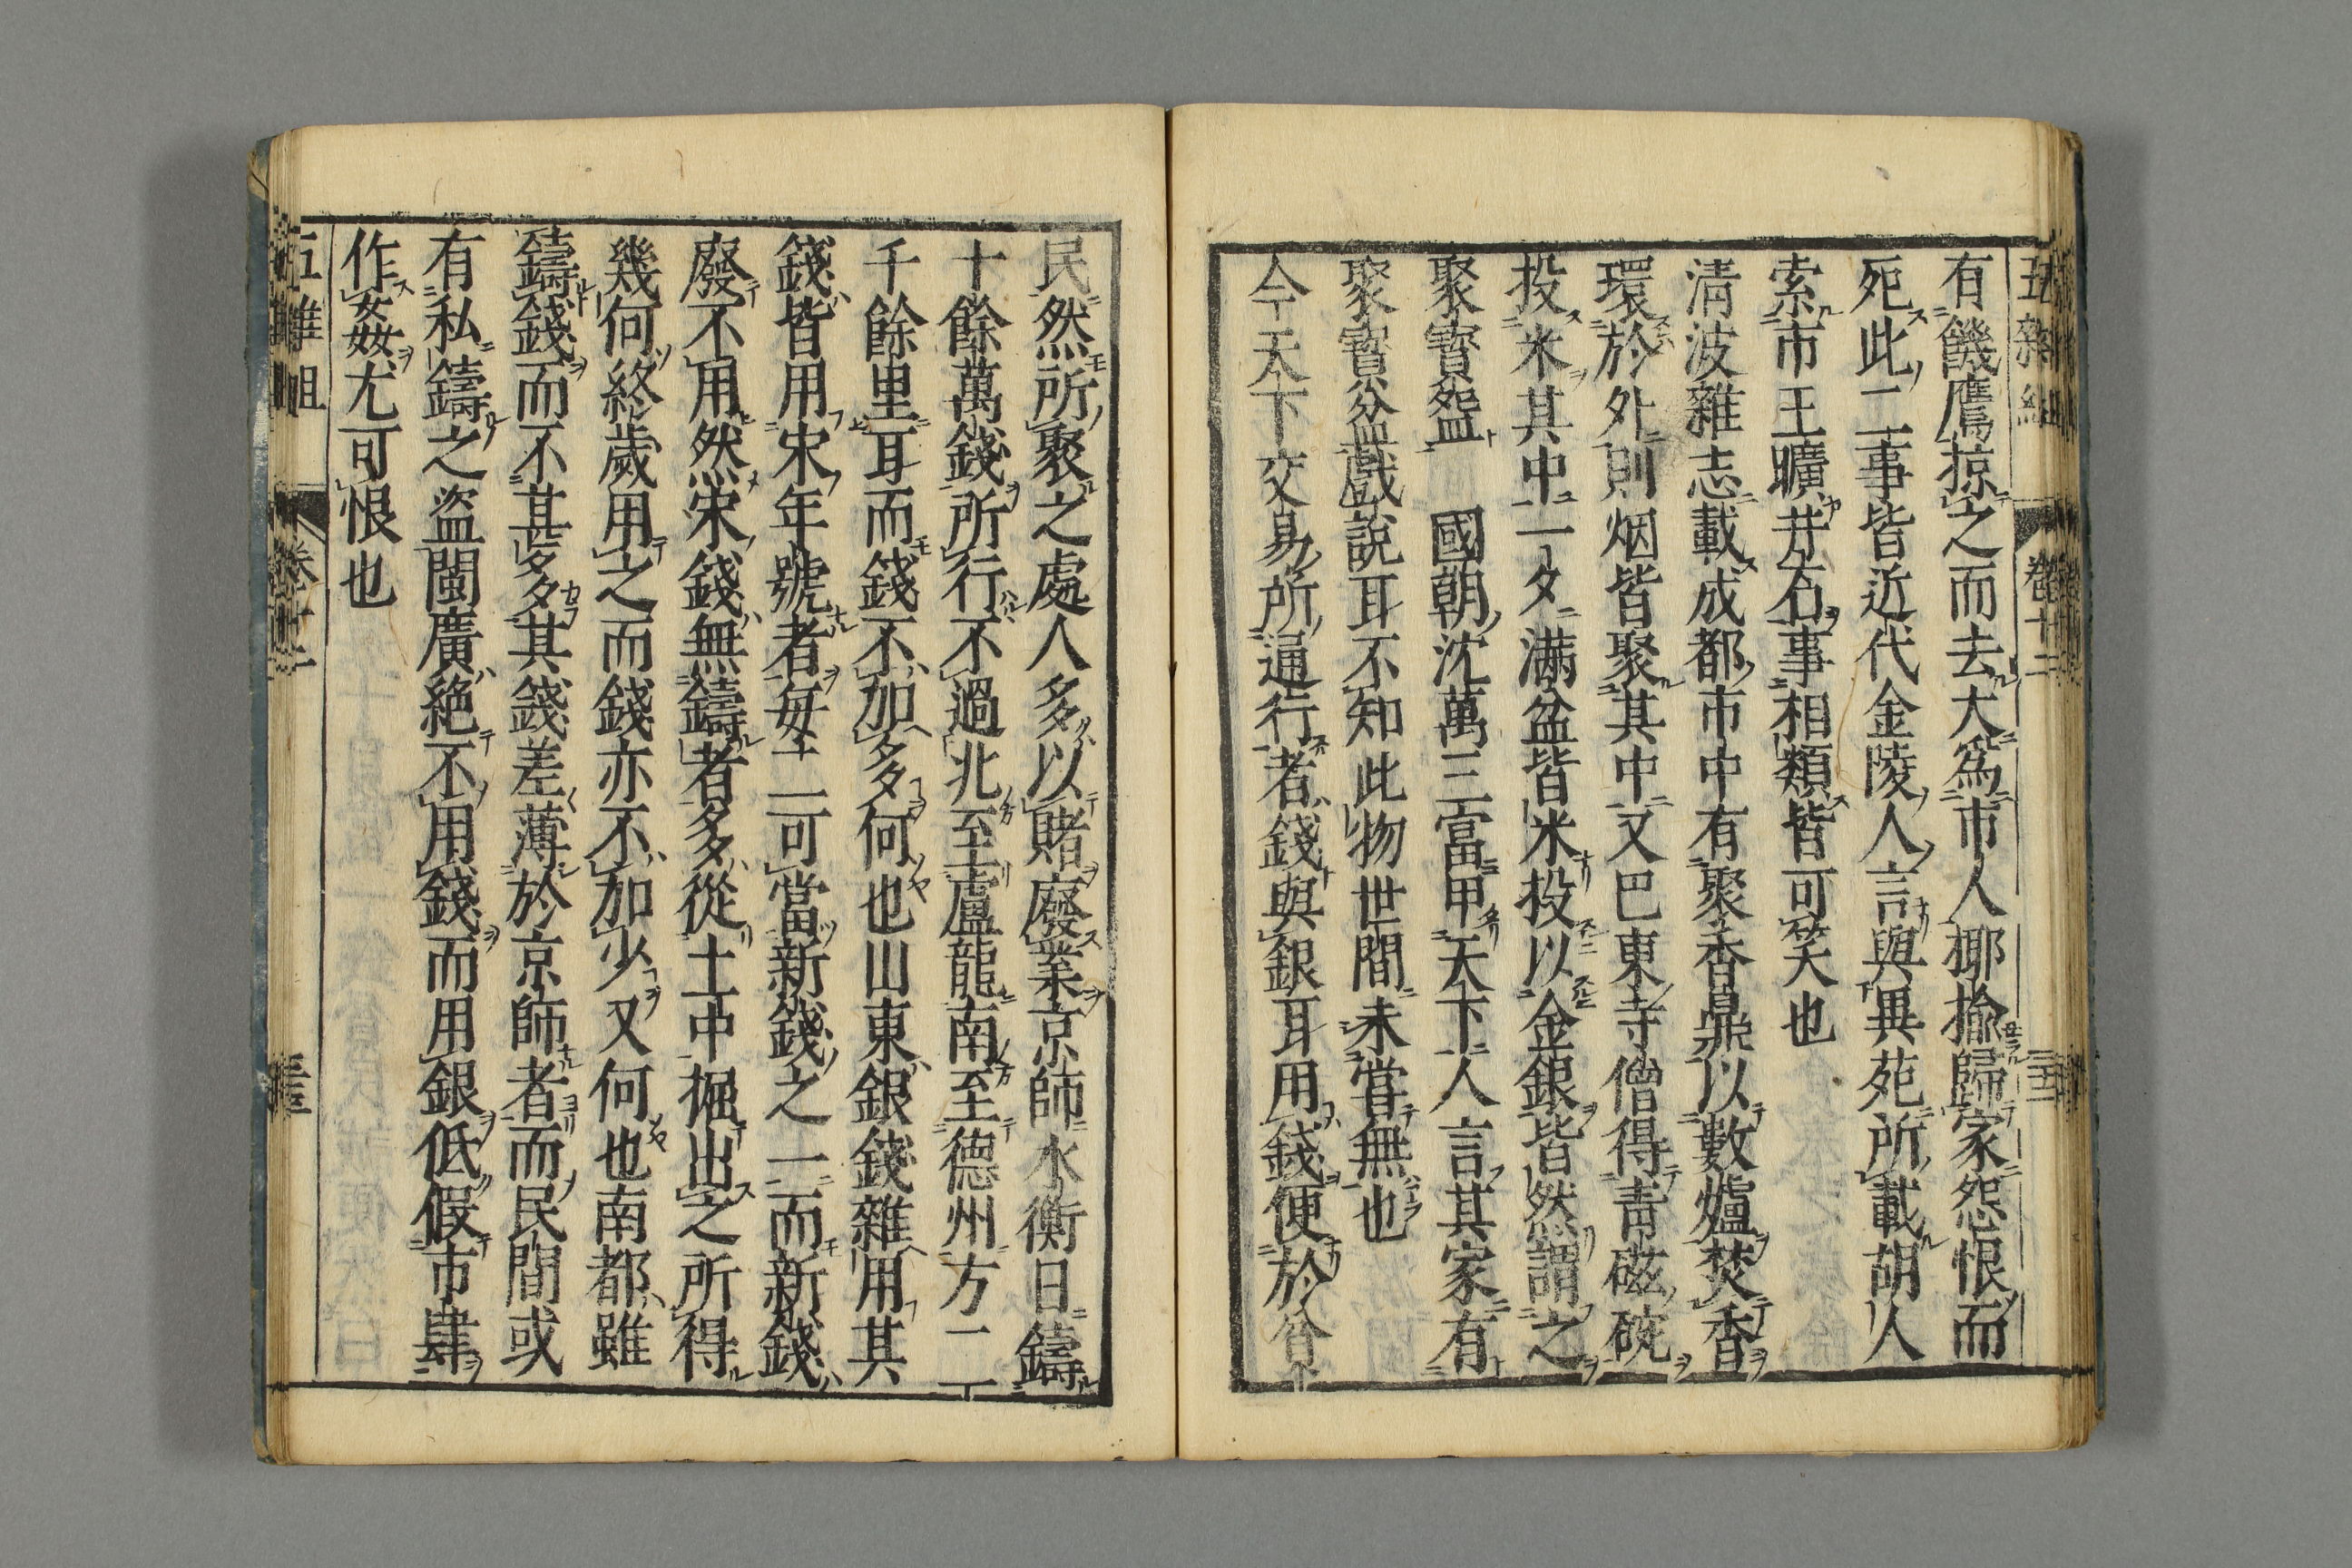 五雜組 卷十二
有饑鷹掠之而去大爲市人揶揄歸家怨恨而
死此二事皆近代金陵人言與異苑所載胡人
索市王曠井石事相類皆可笑也
清波雜志載成都市中有聚香鼎以數爐焚香
環於外則烟皆聚其中又巴東寺僧得青磁碗
投米其中一夕滿盆皆米投以金銀皆然謂之
聚寶盌 國朝沈萬三富甲天下人言其家有
聚寶盆戲說耳不知此物世間未嘗無也
今天下交易所通行者錢與銀耳用錢便於貧
民然所聚之處人多以賭廢業京師水衡日鑄
十餘萬錢所行不過北至盧龍南至德州方二
千餘里耳而錢不加多何也山東銀錢雜用其
錢皆用宋年號者每二可當新錢之一而新錢
廢不用然宋錢無鑄者多從土中掘出之所得
幾何終歲用之而錢亦不加少又何也南都雖
鑄錢而不甚多其錢差薄於京師者而民間或
有私鑄之盜閩廣絶不用錢而用銀低假市肆
作姦尤可恨也
五雜組 卷十二